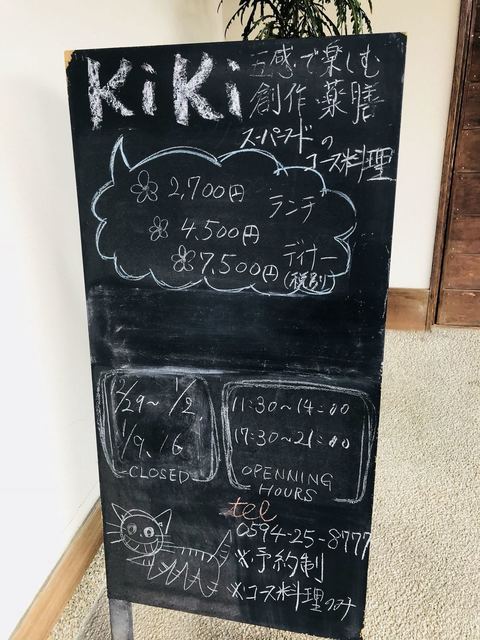 KiKi
五感で楽しむ
創作 薬膳
スーパーフードの
コース料理
2,700円 ランチ
4,500円
7,500円 ディナー
(税別)
29~ 1/2,
1/9, 16
CLOSED
11:30~14:00
17:30~21:00
OPENNING
HOURS
tel
0594-25-8777
※予約制
※コース料理のみ